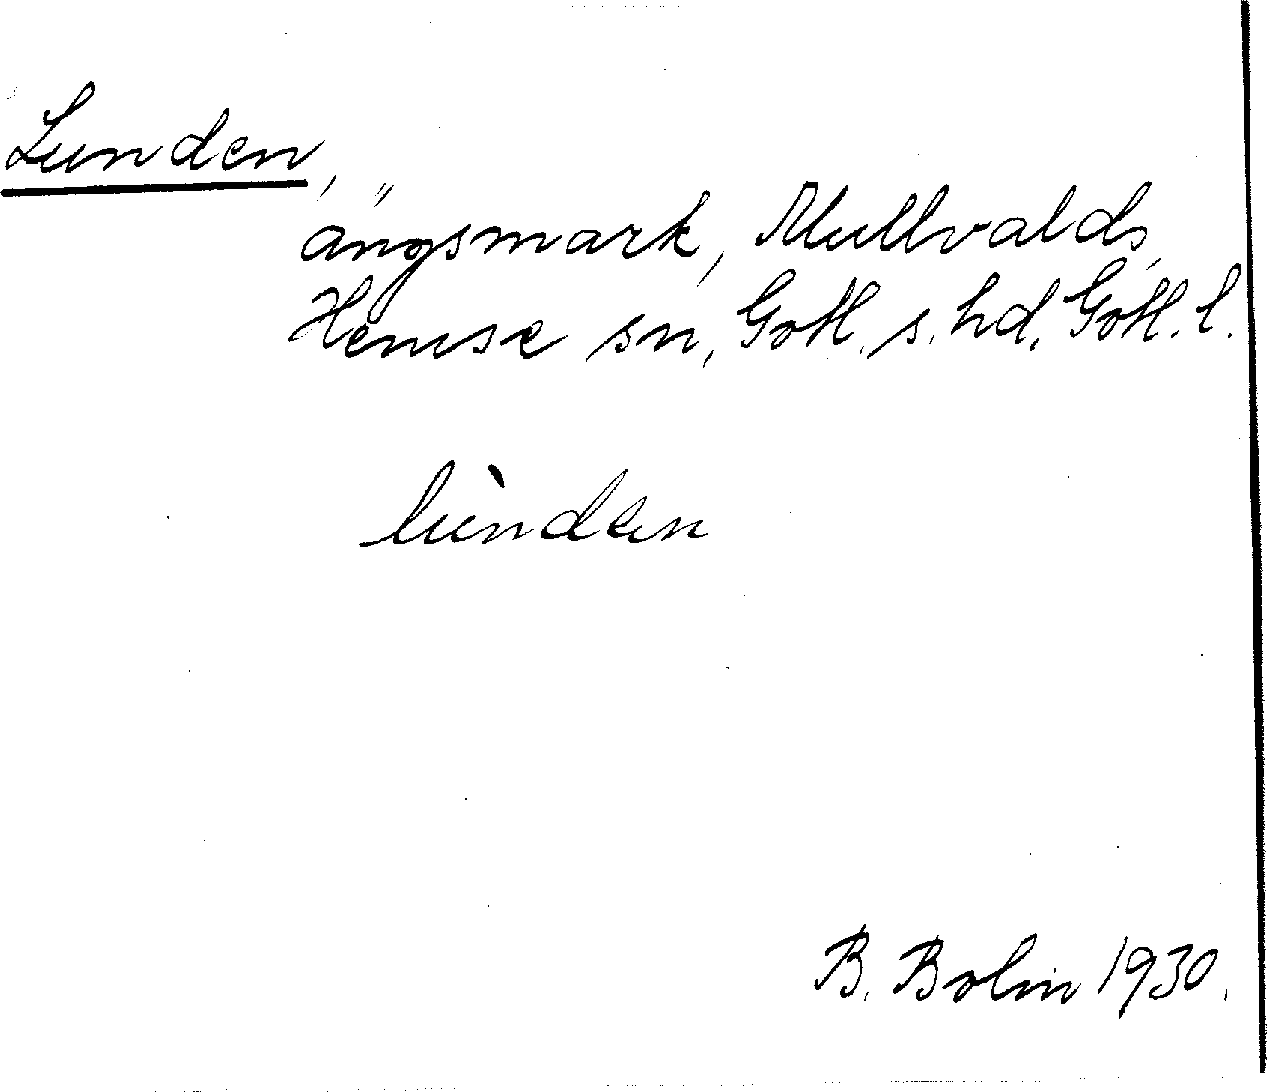 Lunden,
ängsmark, Mullvalds,
Hemse sn, Gotl. s. hd. Gotl. l.
lùnden
B. Bolin 1930.